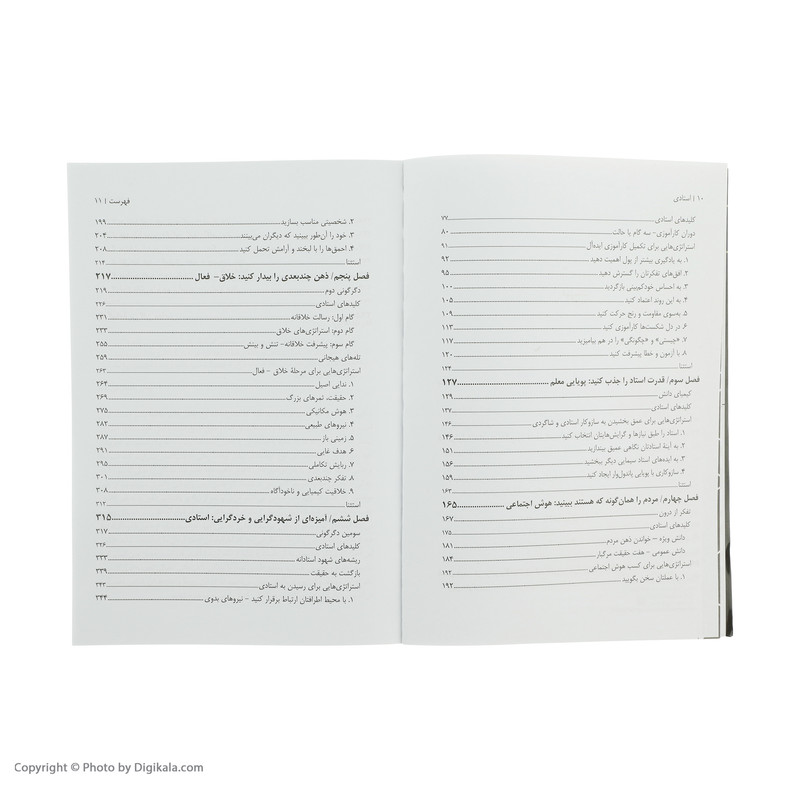 ۱۰ | استادی
کلیدهای استادی ۷۷
دوران کارآموزی- سه گام یا حالت ۸۰
استراتژی‌هایی برای تکمیل کارآموزی ایده‌آل ۹۱
۱. به یادگیری بیشتر از پول اهمیت دهید ۹۲
۲. افق‌های تفکرتان را گسترش دهید ۹۵
۳. به احساس خودکم‌بینی بازگردید ۱۰۰
۴. به این روند اعتماد کنید ۱۰۵
۵. به‌سوی مقاومت و رنج حرکت کنید ۱۰۹
۶. در دل شکست‌ها کارآموزی کنید ۱۱۳
۷. «چیستی» و «چگونگی» را در هم بیامیزید ۱۱۷
۸. با آزمون و خطا پیشرفت کنید ۱۲۰
استثنا ۱۲۴
فصل سوم/ قدرت استاد را جذب کنید: پویایی معلم ۱۲۷
کیمیای دانش ۱۲۹
کلیدهای استادی ۱۳۷
استراتژی‌هایی برای عمق بخشیدن به سازوکار استادی و شاگردی ۱۴۶
۱. استاد را طبق نیازها و گرایش‌هایتان انتخاب کنید ۱۴۶
۲. به آینهٔ استادتان نگاهی عمیق بیندازید ۱۵۱
۳. به ایده‌های استاد سیمایی دیگر ببخشید ۱۵۶
۴. سازوکاری با پویایی پاندول‌وار ایجاد کنید ۱۵۹
استثنا ۱۶۳
فصل چهارم/ مردم را همان‌گونه که هستند ببینید: هوش اجتماعی ۱۶۵
تفکر از درون ۱۶۷
کلیدهای استادی ۱۷۵
دانش ویژه – خواندن ذهن مردم ۱۸۱
دانش عمومی – هفت حقیقت مرگبار ۱۸۴
استراتژی‌هایی برای کسب هوش اجتماعی ۱۹۲
۱. با عملتان سخن بگویید ۱۹۲
فهرست | ۱۱
۲. شخصیتی مناسب بسازید ۱۹۹
۳. خود را آن‌طور ببینید که دیگران می‌بینند ۲۰۴
۴. احمق‌ها را با لبخند و آرامش تحمل کنید ۲۰۸
استثنا ۲۱۴
فصل پنجم/ ذهن چندبعدی را بیدار کنید: خلاق- فعال ۲۱۷
دگرگونی دوم ۲۱۹
کلیدهای استادی ۲۲۶
گام اول: رسالت خلاقانه ۲۳۱
گام دوم: استراتژی‌های خلاق ۲۳۳
گام سوم: پیشرفت خلاقانه- تنش و بینش ۲۵۵
تله‌های هیجانی ۲۵۹
استراتژی‌هایی برای مرحلهٔ خلاق – فعال ۲۶۳
۱. ندایی اصیل ۲۶۴
۲. حقیقت، ثمرهای بزرگ ۲۶۹
۳. هوش مکانیکی ۲۷۵
۴. نیروهای طبیعی ۲۸۲
۵. زمینی باز ۲۸۷
۶. هدف غایی ۲۹۱
۷. ربایش تکاملی ۲۹۵
۸. تفکر چندبعدی ۳۰۱
۹. خلاقیت کیمیایی و ناخودآگاه ۳۰۸
استثنا ۳۱۲
فصل ششم/ آمیزه‌ای از شهودگرایی و خردگرایی: استادی ۳۱۵
سومین دگرگونی ۳۱۷
کلیدهای استادی ۳۲۶
ریشه‌های شهود استادانه ۳۳۳
بازگشت به حقیقت ۳۳۹
استراتژی‌هایی برای رسیدن به استادی ۳۴۳
۱. با محیط اطرافتان ارتباط برقرار کنید – نیروهای بدوی ۳۴۴
Copyright © Photo by Digikala.com